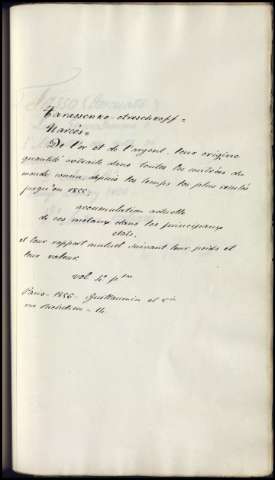 Tarassenko-Otreschkoff =
Narcès =
De l'or et de l'argent, leur origine
quantité extraite dans toutes les contrées du
monde connu, depuis les temps les plus reculés
jusqu'en 1855.
accumulation actuelle
de ces métaux dans les principaux
états.
et leur rapport mutuel suivant leur poids et
leur valeur
vol 4° p
Paris - 1856 - Guillaumin et Cie
rue Richelieu - 14